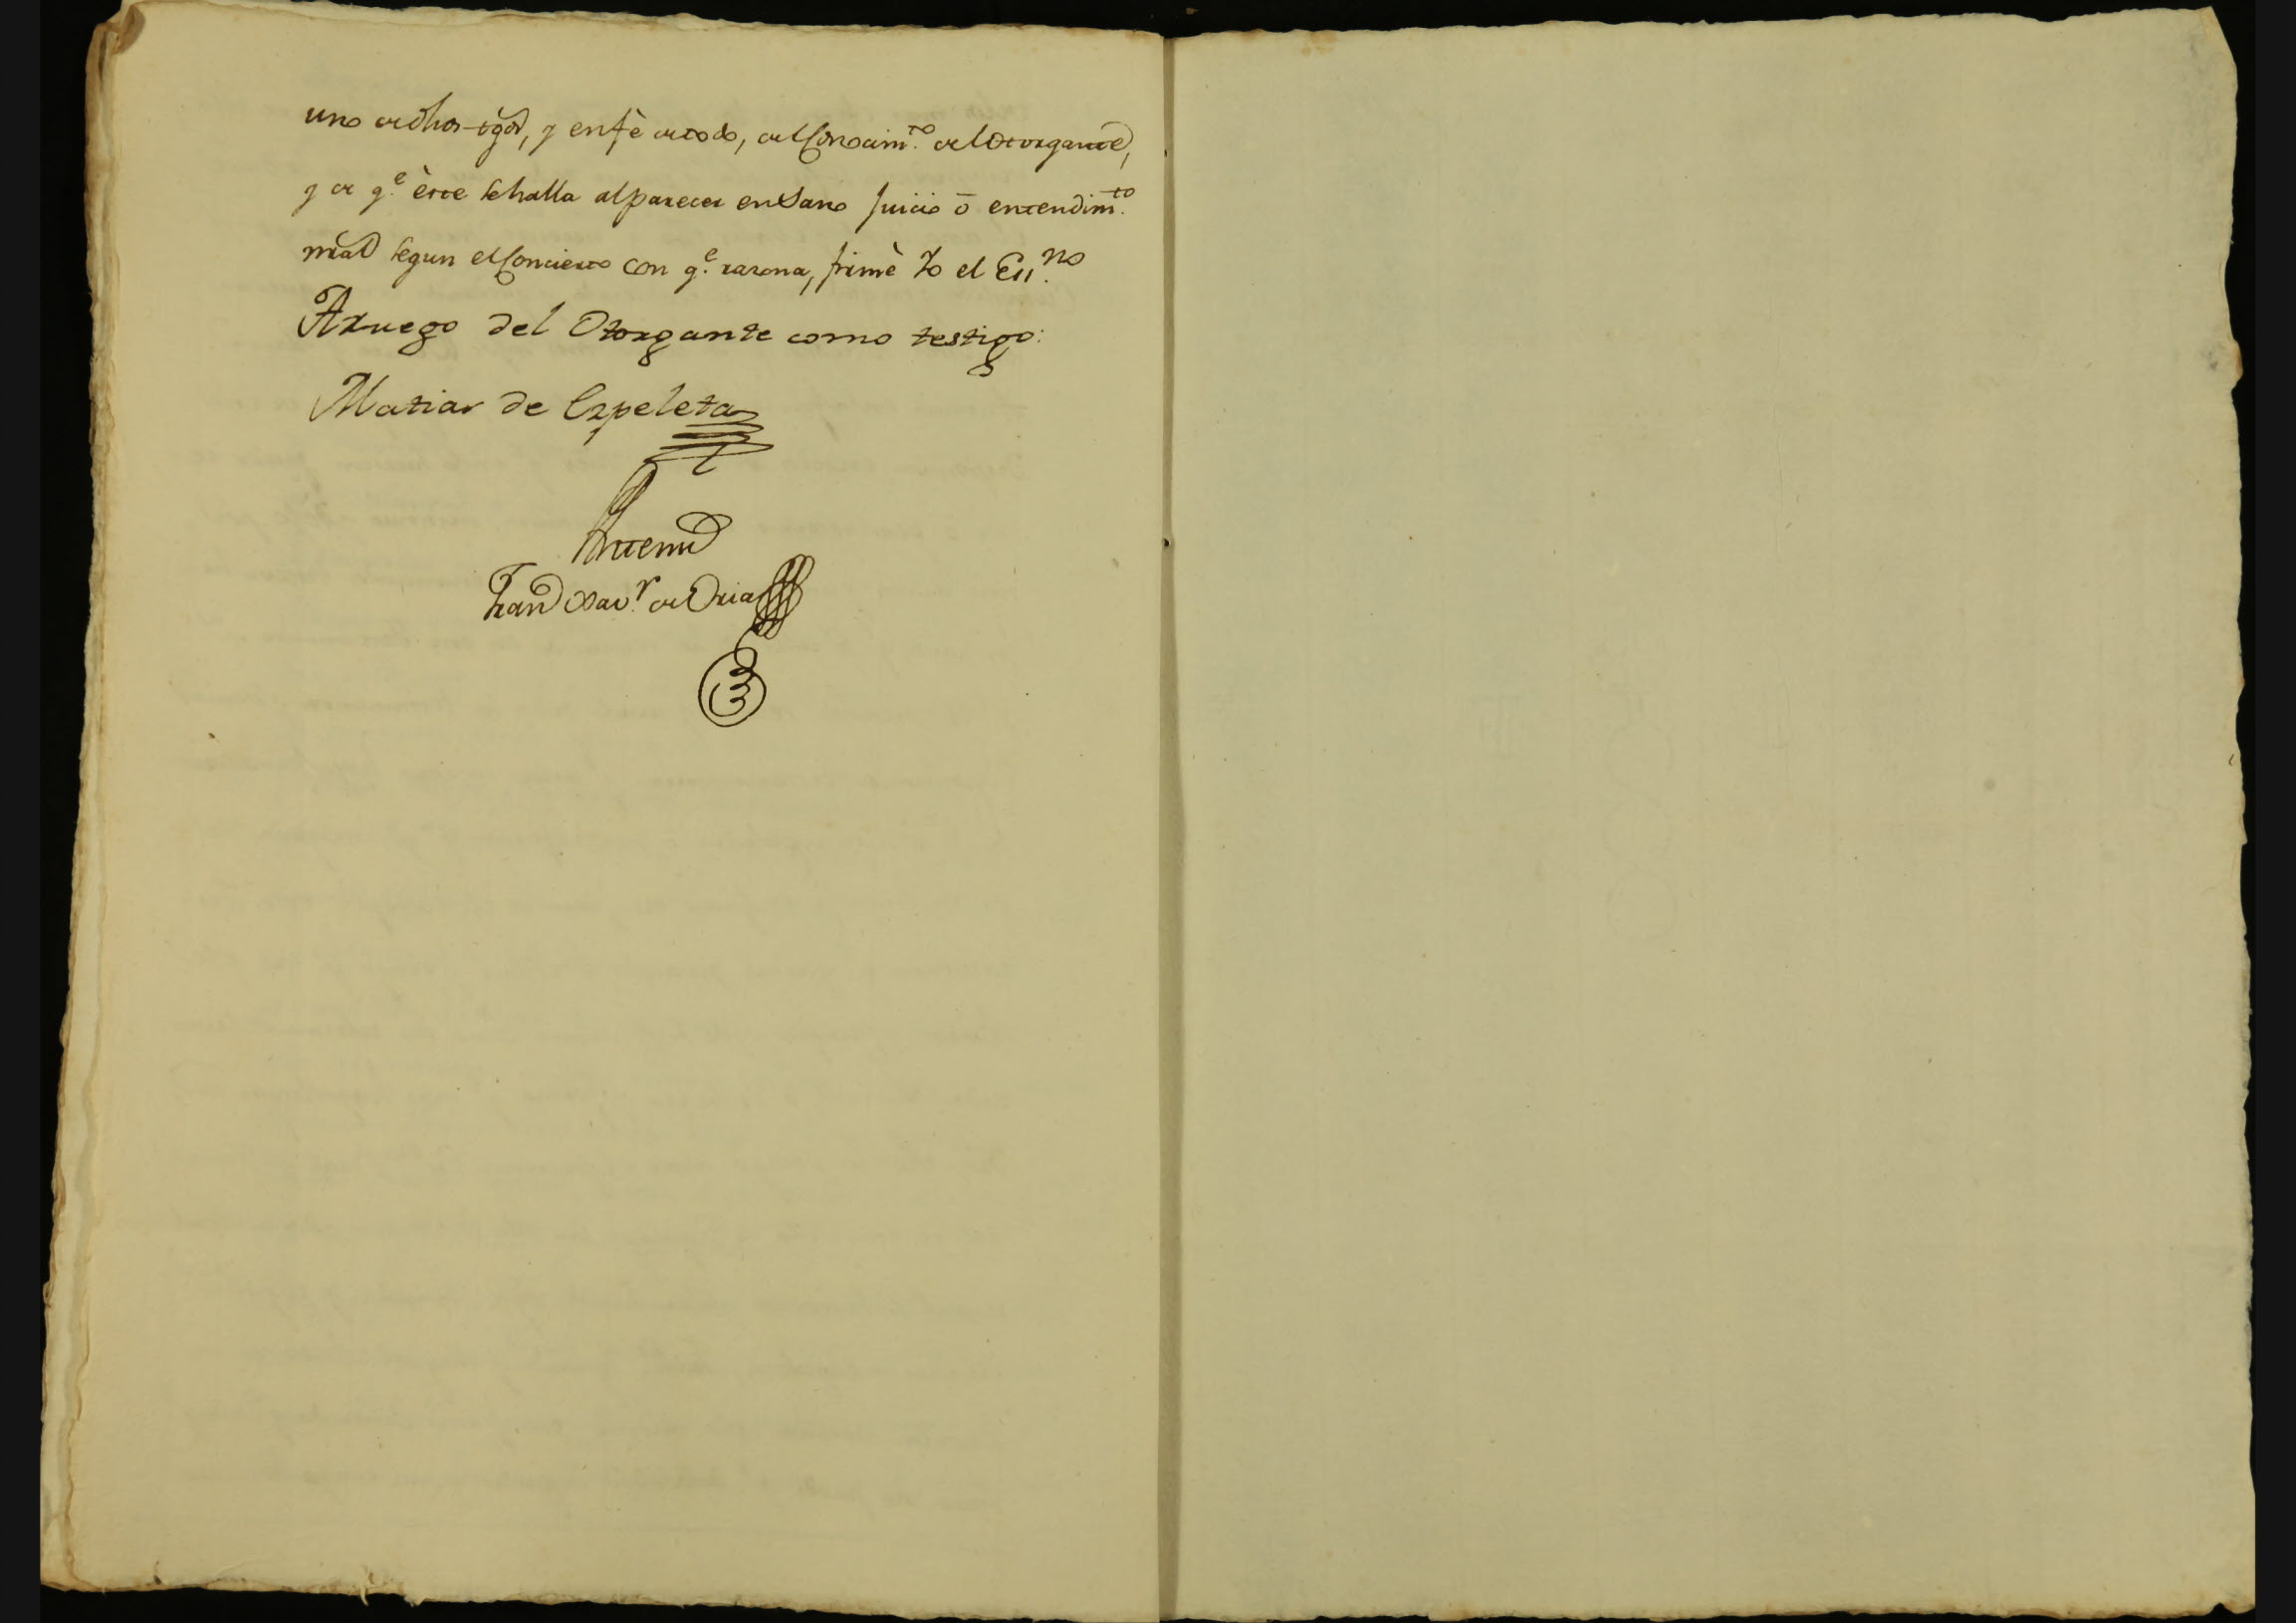 uno de dhos tgõs, y en fè de todo, del Conocim.to del Otorgante,
y de q.e èste se halla al parecer en Sano Juicio ō entendim.to
nrãl segun el Concierto con q.e razona, firmè Yo el Ess.no
A ruego del Otorgante como testigo:
Matias de Ezpeleta
Antemi
Fran.co Xav.r de Oria